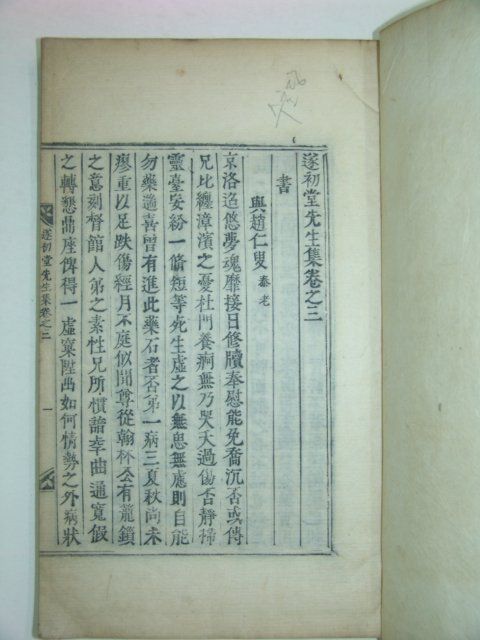 遂初堂先生集卷之三
書
與趙仁叟 泰老
京洛迢悠夢魂靡接日修牘奉慰能免喬沉否或傳
兄比纏漳濱之憂杜門養痾無乃哭夭過傷否靜掃
靈臺安紛一脩短等死生虛之以無思無慮則自能
勿藥遄喜曾有進此藥石者否弟一病三夏秋尚未
瘳重以足跌傷經月不庭似聞尊從翰林公有蘢鎖
之意刻督館人弟之素性兄所慣諳幸曲通寬假
之轉懇鼎座俾得一虛窠陞出如何情勢之外病狀
遂初堂先生集卷之三 一